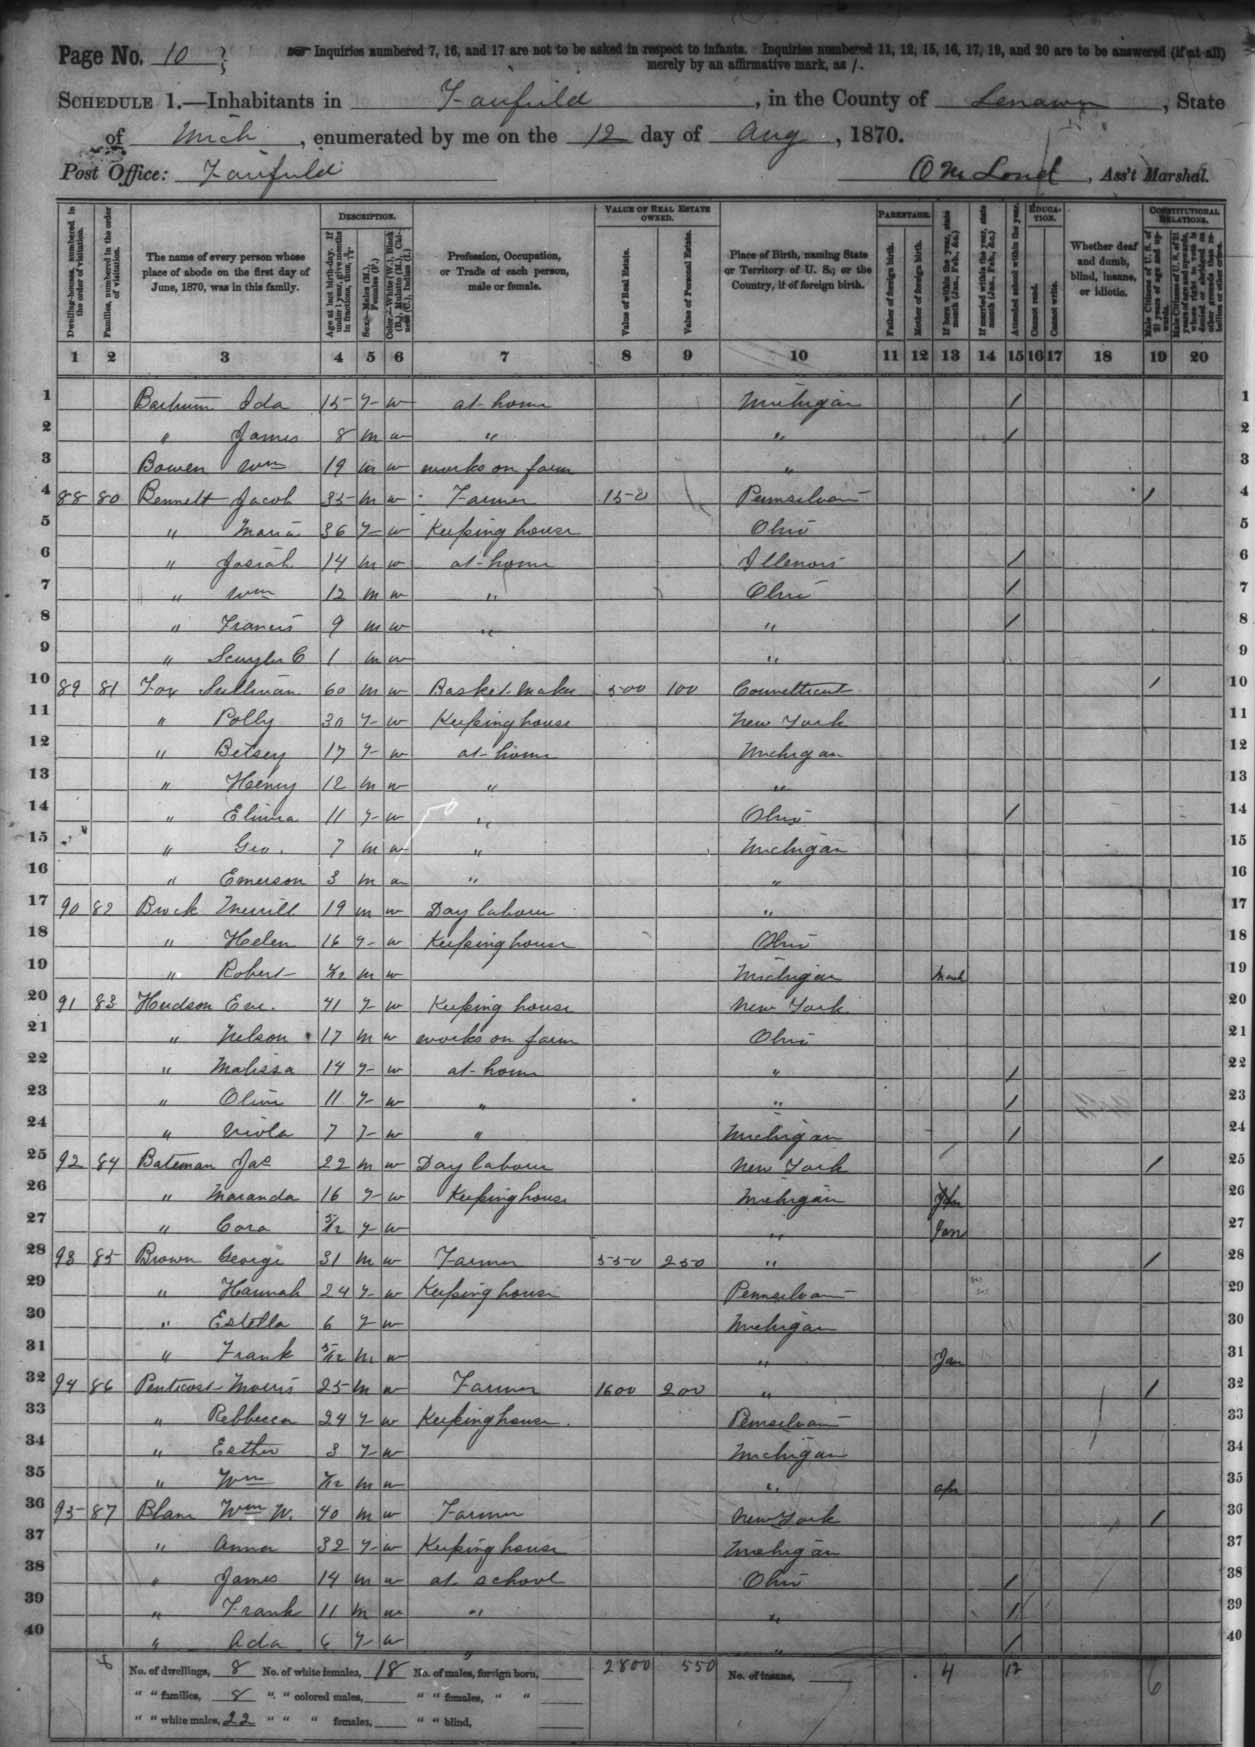 Page No. 10 }
Inquiries numbered 7, 16, and 17 are not to be asked in respect to infants. Inquiries numbered 11, 12, 15, 16, 17, 19, and 20 are to be answered (if at all)
merely by an affirmative mark, as /.
SCHEDULE 1.—Inhabitants in Fairfield, in the County of Lenawee, State
of Mich, enumerated by me on the 12 day of Aug, 1870.
Post Office: Fairfield O M Loud, Ass't Marshal.
DESCRIPTION. VALUE OF REAL ESTATE OWNED. PARENTAGE. EDUCATION. CONSTITUTIONAL RELATIONS.
Dwelling-houses, numbered in the order of visitation.
Families, numbered in the order of visitation.
The name of every person whose place of abode on the first day of June, 1870, was in this family.
Age at last birth-day. If under 1 year, give months in fractions, thus, 3/12
Sex.—Males (M.), Females (F.)
Color.—White (W.), Black (B.), Mulatto (M.), Chinese (C.), Indian (I.)
Profession, Occupation, or Trade of each person, male or female.
Value of Real Estate.
Value of Personal Estate.
Place of Birth, naming State or Territory of U. S.; or the Country, if of foreign birth.
Father of foreign birth.
Mother of foreign birth.
If born within the year, state month (Jan., Feb., &c.)
If married within the year, state month (Jan., Feb., &c.)
Attended school within the year.
Cannot read.
Cannot write.
Whether deaf and dumb, blind, insane, or idiotic.
Male Citizens of U. S. of 21 years of age and upwards.
Male Citizens of U. S. of 21 years of age and upwards, whose right to vote is denied or abridged on other grounds than rebellion or other crime.
1 2 3 4 5 6 7 8 9 10 11 12 13 14 15 16 17 18 19 20
1 Ida 15 F W at home Michigan / 1
2 " James 8 M W " " / 2
3 Bowen Wm 19 M W works on farm " 3
4 88 80 Bennett Jacob 35 M W Farmer 150 Pennsilvani / 4
5 " Maria 36 F W Keeping house Ohio 5
6 " Josiah 14 M W at home Illenois / 6
7 " Wm 12 M W " Ohio / 7
8 " Francis 9 M W " " / 8
9 " C 1 M W " 9
10 89 81 Fox Sullivan 60 M W Basket Maker 500 100 Connetticut / 10
11 " Polly 30 F W Keeping house New York 11
12 " Betsey 17 F W at home Michigan 12
13 " Henry 12 M W " " 13
14 " Elmira 11 F W " Ohio / 14
15 " Geo. 7 M W " Michigan 15
16 " Emerson 3 M W " " 16
17 90 82 Brock Merrill 19 M W Day laborer " 17
18 " Helen 16 F W Keeping house Ohio 18
19 " Robert /12 M W Michigan March 19
20 91 83 Hudson Eve. 41 F W Keeping house New York 20
21 " Nelson 17 M W works on farm Ohio 21
22 " Malissa 14 F W at home " / 22
23 " Olive 11 F W " " / 23
24 " Viola 7 F W " Michigan / 24
25 92 84 Bateman Jas 22 M W Day laborer New York / 25
26 " Maranda 16 F W Keeping house Michigan Jan 26
27 " Cora 5/12 F W " Jan 27
28 93 85 Brown George 31 M W Farmer 550 250 " / 28
29 " Hannah 24 F W Keeping house Pennsilvani 29
30 " Estella 6 F W Michigan 30
31 " Frank 5/12 M W " Jan 31
32 94 86 Penticost Morris 25 M W Farmer 1600 200 " / 32
33 " Rebbecca 24 F W Keeping house Pennsilvani 33
34 " Esther 3 F W Michigan 34
35 " Wm /12 M W " Apr 35
36 95 87 Wm W. 40 M W Farmer New York / 36
37 " Anna 32 F W Keeping house Michigan 37
38 " James 14 M W at school Ohio / 38
39 " Frank 11 M W " " / 39
40 " Ada 6 F W " " / 40
No. of dwellings, 8 No. of white females, 18 No. of males, foreign born, 2800 550 No. of insane, 4 12 6
" " families, 8 " " colored males, " " females, " "
" " white males, 22 " " " females, " " blind,